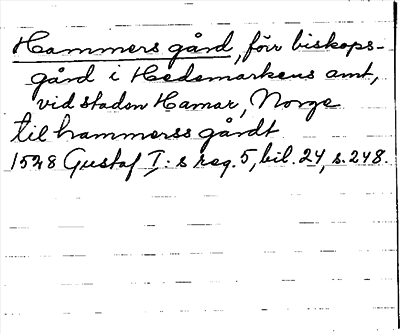 Hammers gård, förr biskops-
gård i Hedemarkens amt,
vid staden Hamar, Norge
til hammerss gårdt
1528 Gustaf I:s reg. 5, bil. 24, s. 248.